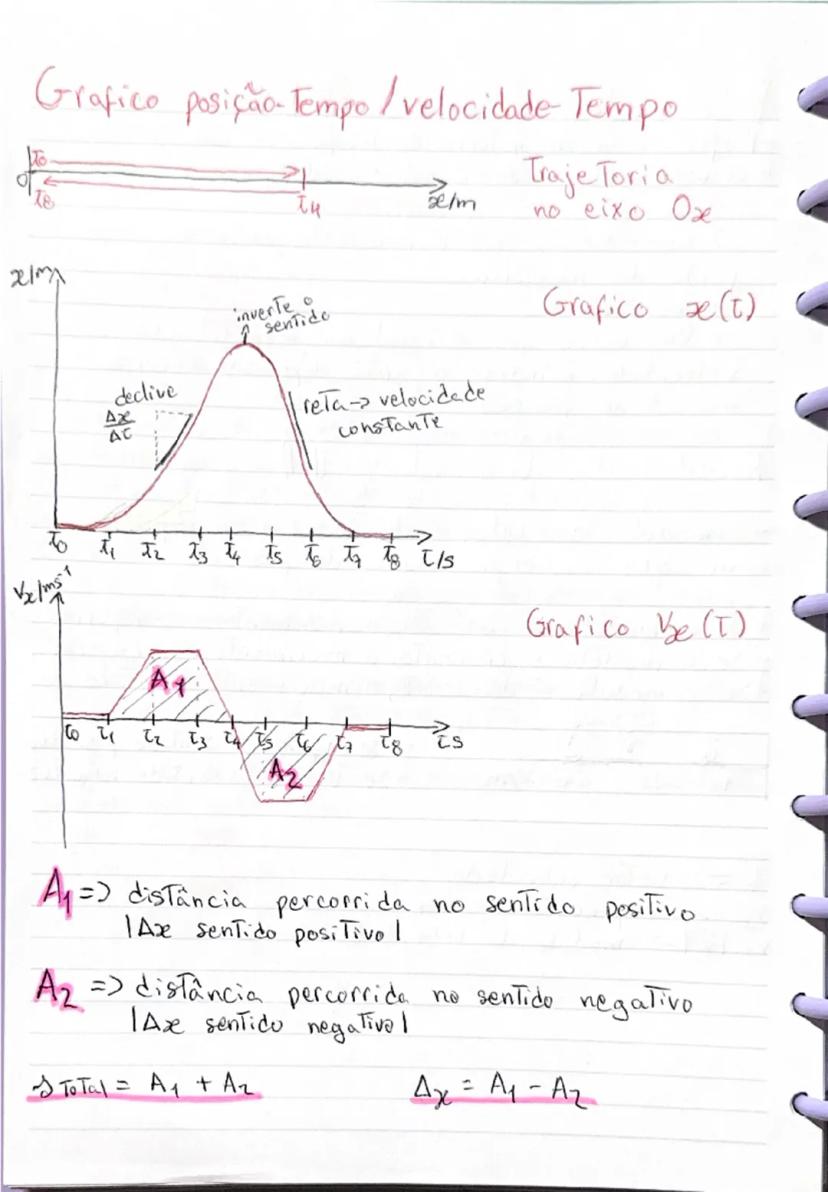 Grafico posição-Tempo/velocidade-Tempo
t0
0
t8
t4
x/m
Trajetoria
no eixo Ox
x/m
Grafico x(t)
inverte o
sentido
declive
Δx
Δt
reta → velocidade
constante
t0 t1 t2 t3 t4 t5 t6 t7 t8 t/s
Vx/ms⁻¹
Grafico Vx(t)
A1
t0 t1 t2 t3 t4 t5 t6 t7 t8 ts
A2
A1 => distância percorrida no sentido positivo
|Δx sentido positivo|
A2 => distância percorrida no sentido negativo
|Δx sentido negativo|
s Total = A1 + A2
Δx = A1 - A2